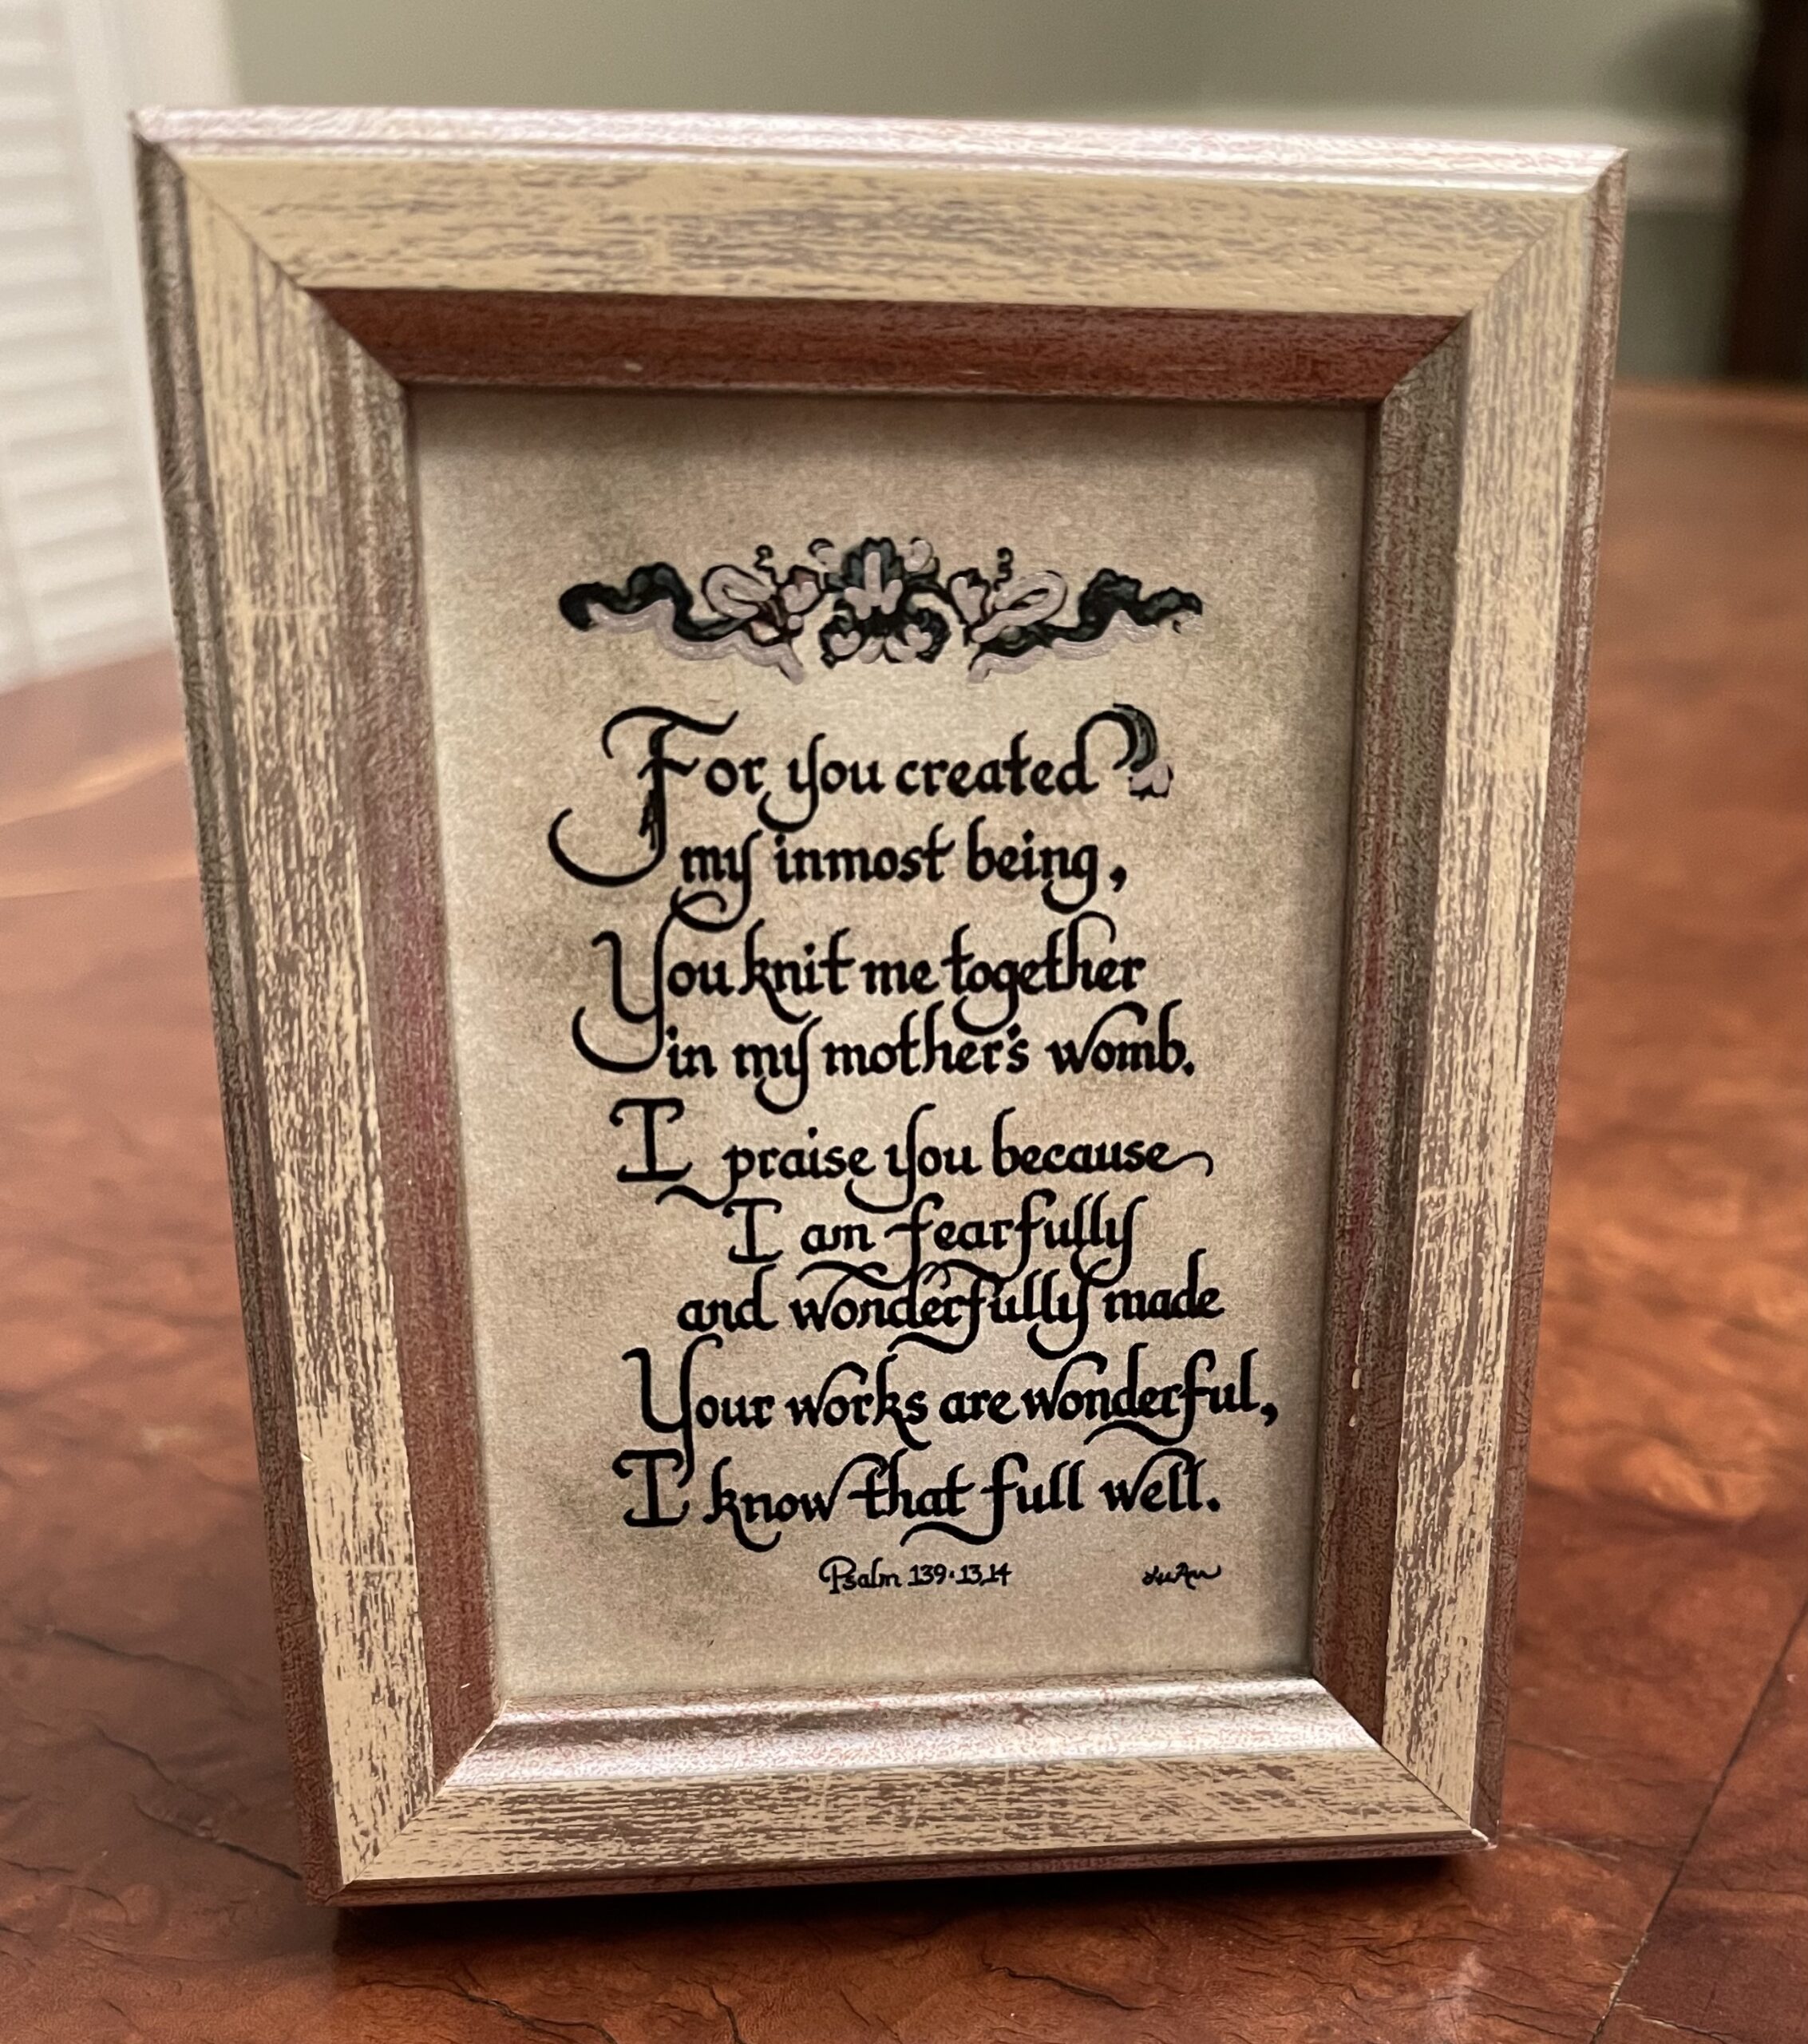 For you created
my inmost being,
You knit me together
in my mother's womb.
I praise you because
I am fearfully
and wonderfully made
Your works are wonderful,
I know that full well.
Psalm 139:13,14 LuAnn